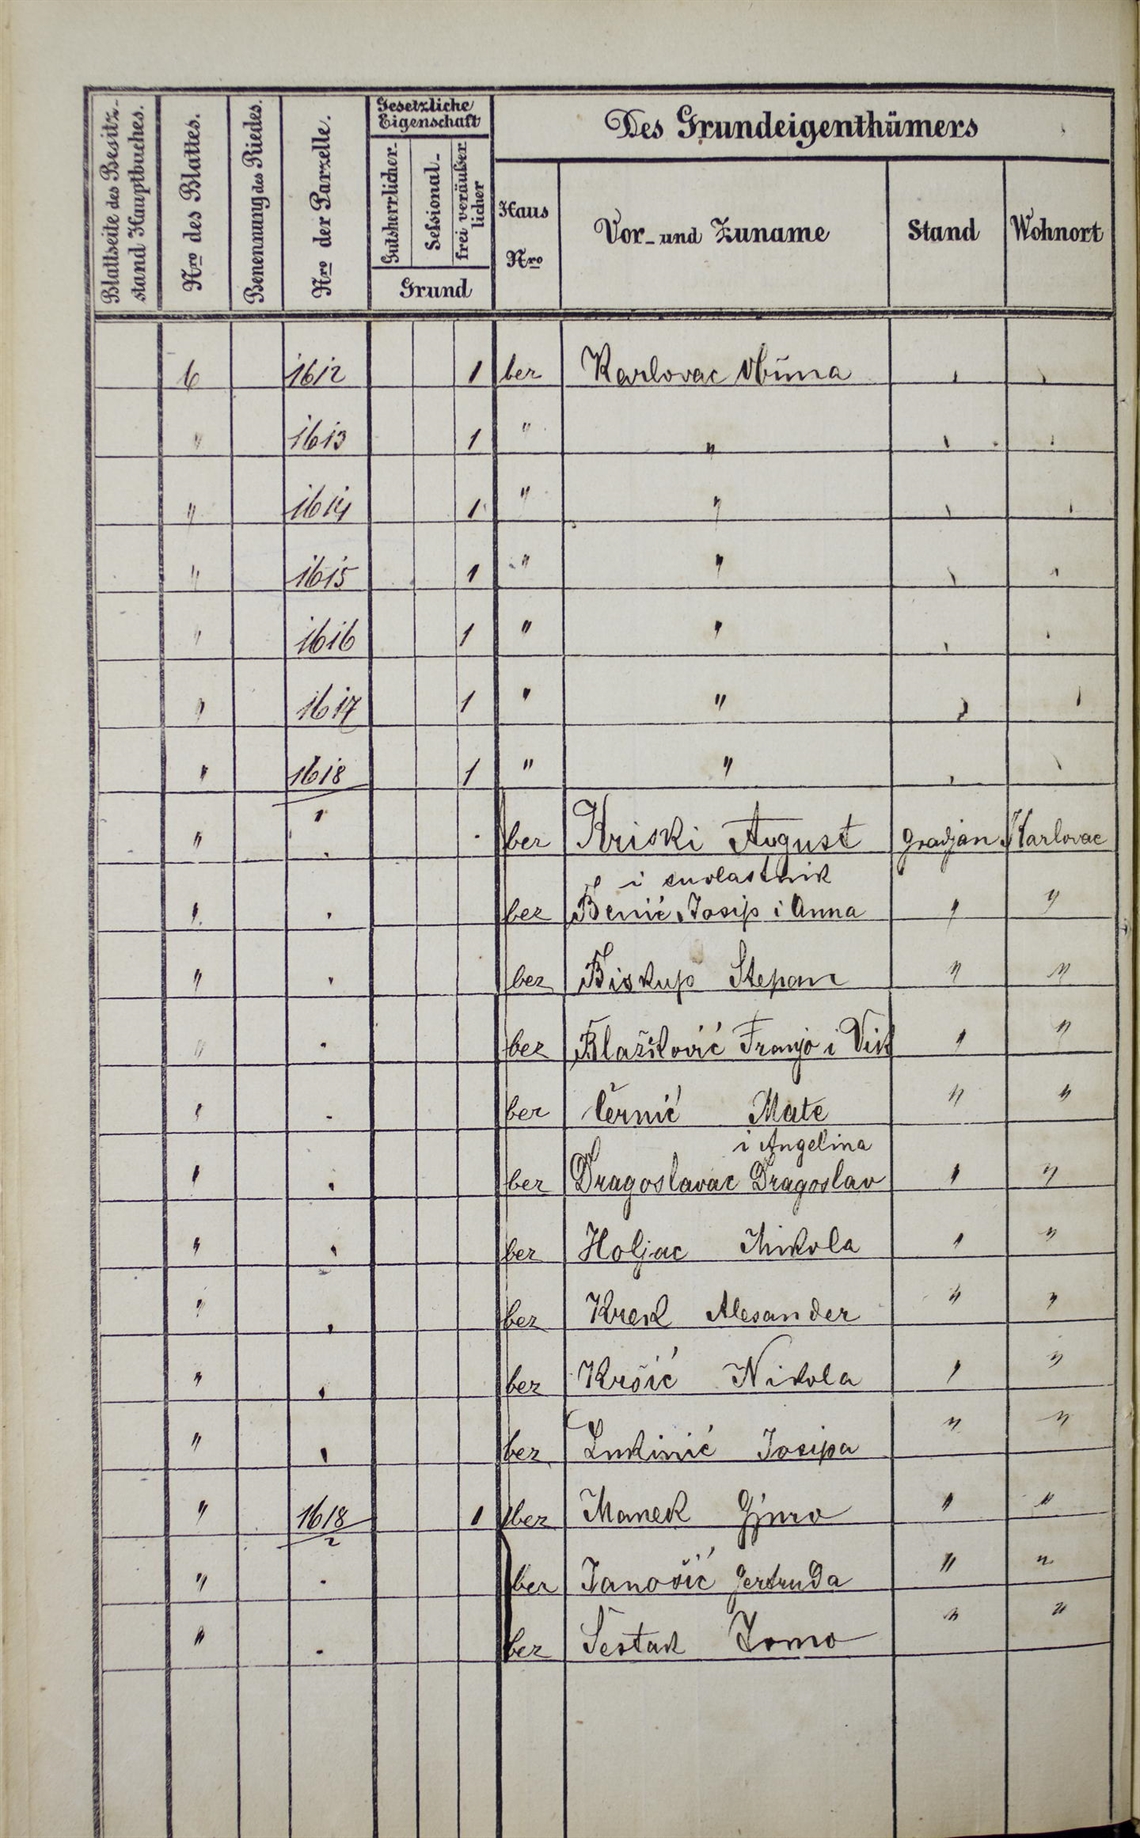 Blattseite des Besitz-
stand Hauptbuches.
Nro des Blattes.
Benennung des Riedes.
Nro der Parzelle.
Gesetzliche
Eigenschaft
Gutsherrlicher
Sessional-
frei veräußer
licher
Grund
Des Grundeigenthümers
Haus
Nro
Vor- und Zuname
Stand
Wohnort
6 1612 1 bez Karlovac obćina , ,
" 1613 1 " " , ,
" 1614 1 " " , ,
" 1615 1 " " , "
" 1616 1 " " , ,
" 1617 1 " " , ,
" 1618/1 1 " " , ,
" . . bez Kriski August gradjan Karlovac
i suvlastnik
" . bez Benić Josip i Anna " "
" . bez Biskup Stepan " "
" . bez Blažković Franjo i Vik " "
" . bez Černić Mate " "
i Angelina
" . bez Dragoslavac Dragoslav " "
" . bez Holjac Nikola " "
" . bez Krek Alesander " "
" . bez Kršić Nikola " "
" . bez Lukinić Josipa " "
" 1618/2 1 bez Manek Gjuro " "
" . bez Janošić Gertruda " "
" . bez Šestak Tomo " "